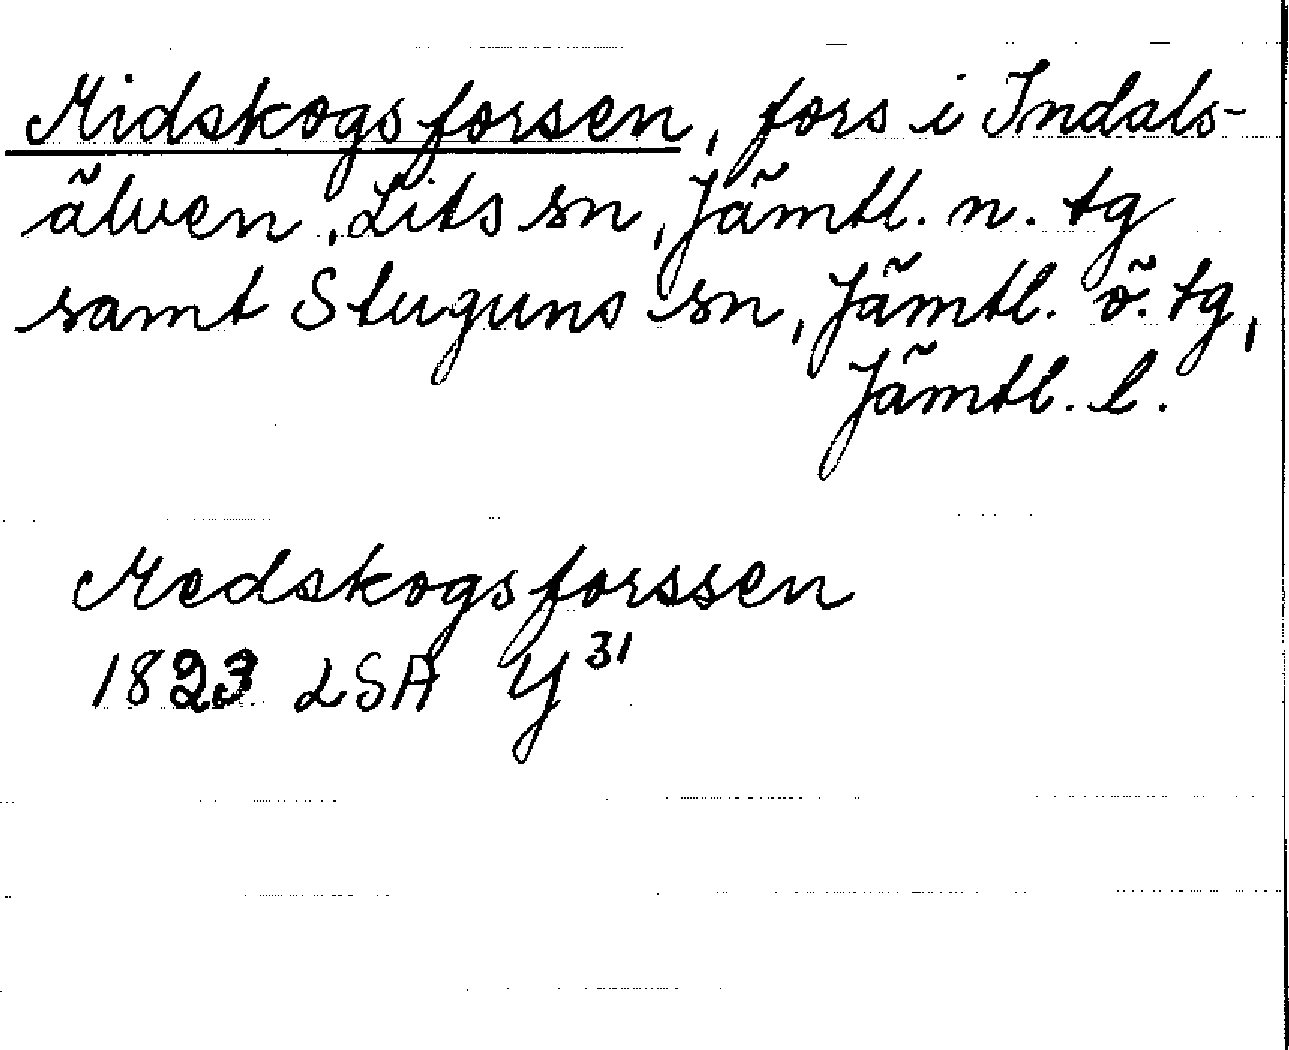 Midskogsforsen, fors i Indals-
älven, Lits sn, Jämtl. n. tg
samt Stuguns sn, Jämtl. ö. tg,
Jämtl. l.
Medskogsforssen
1823 LSA Y 31